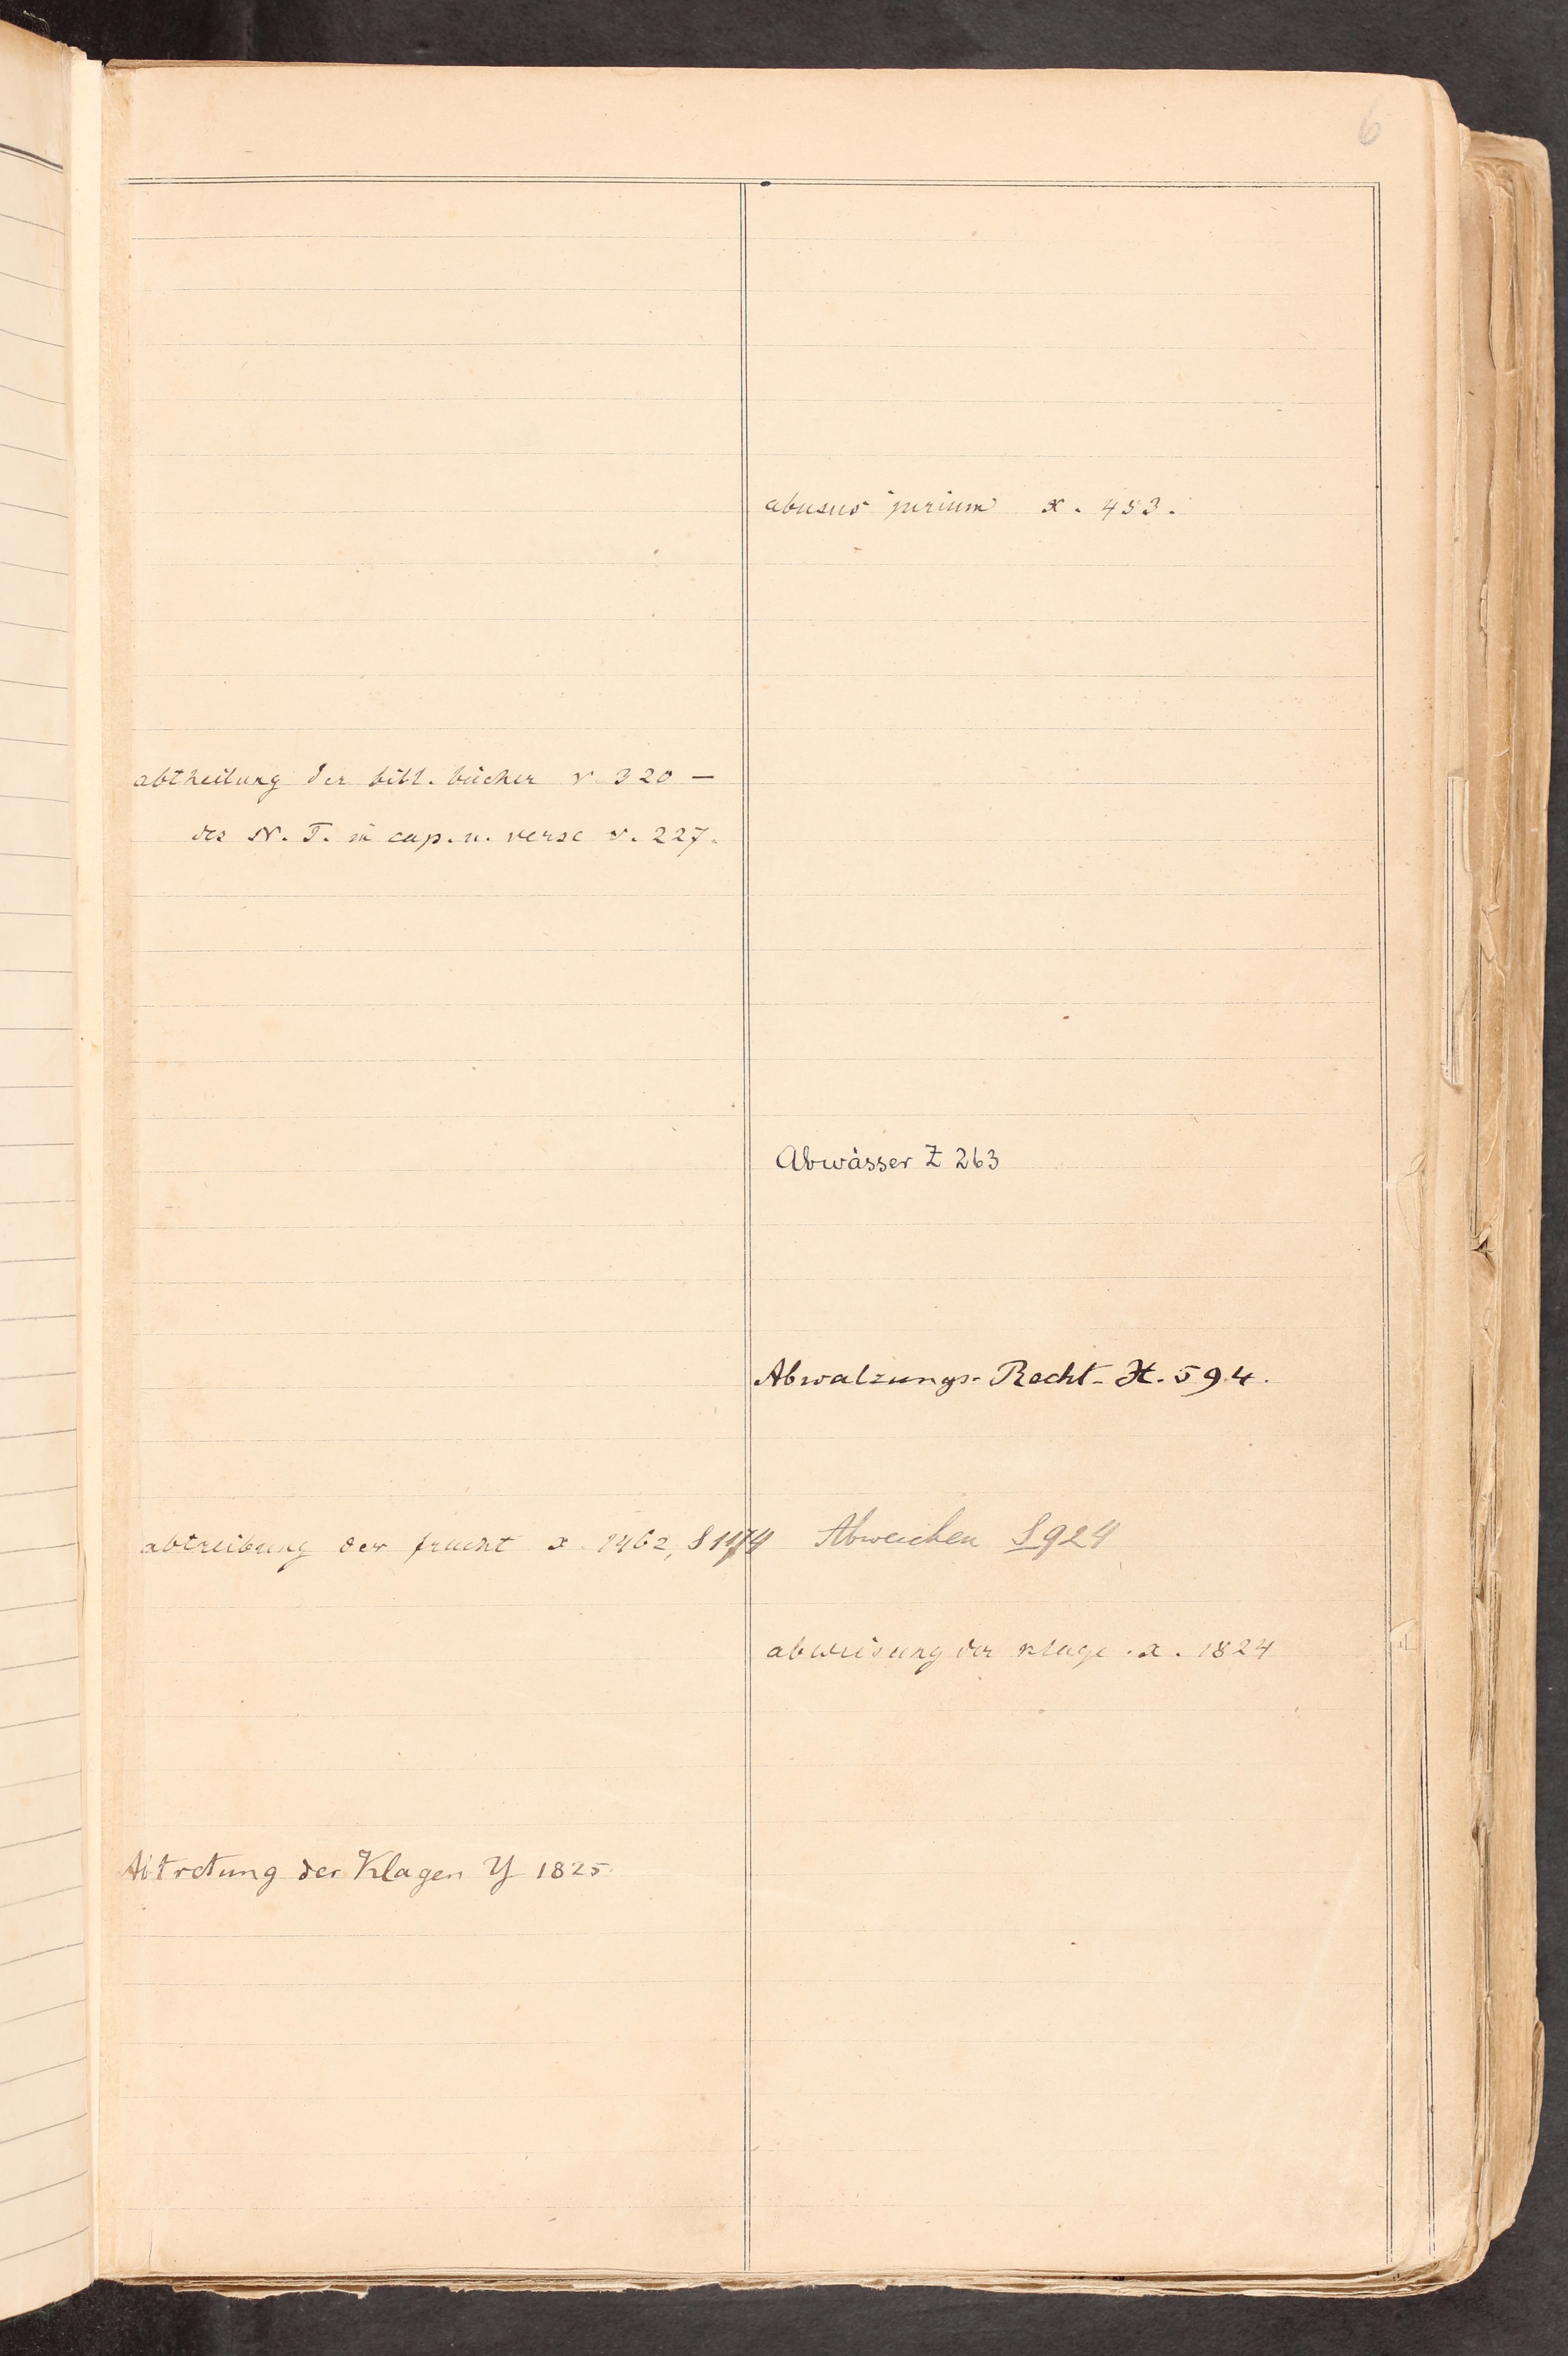 6
abtheilung der bibl. bücher v. 320 —
des N. T. in cap. u. verse v. 227.
abtreibung der frucht x. 1462, S 1174
Abtretung der Klagen Y 1825.
abusus jurium x. 453.
Abwässer Z 263
Abwalzungs-Recht - H. 594.
Abweichen S 924
abweisung der klage . x. 1824